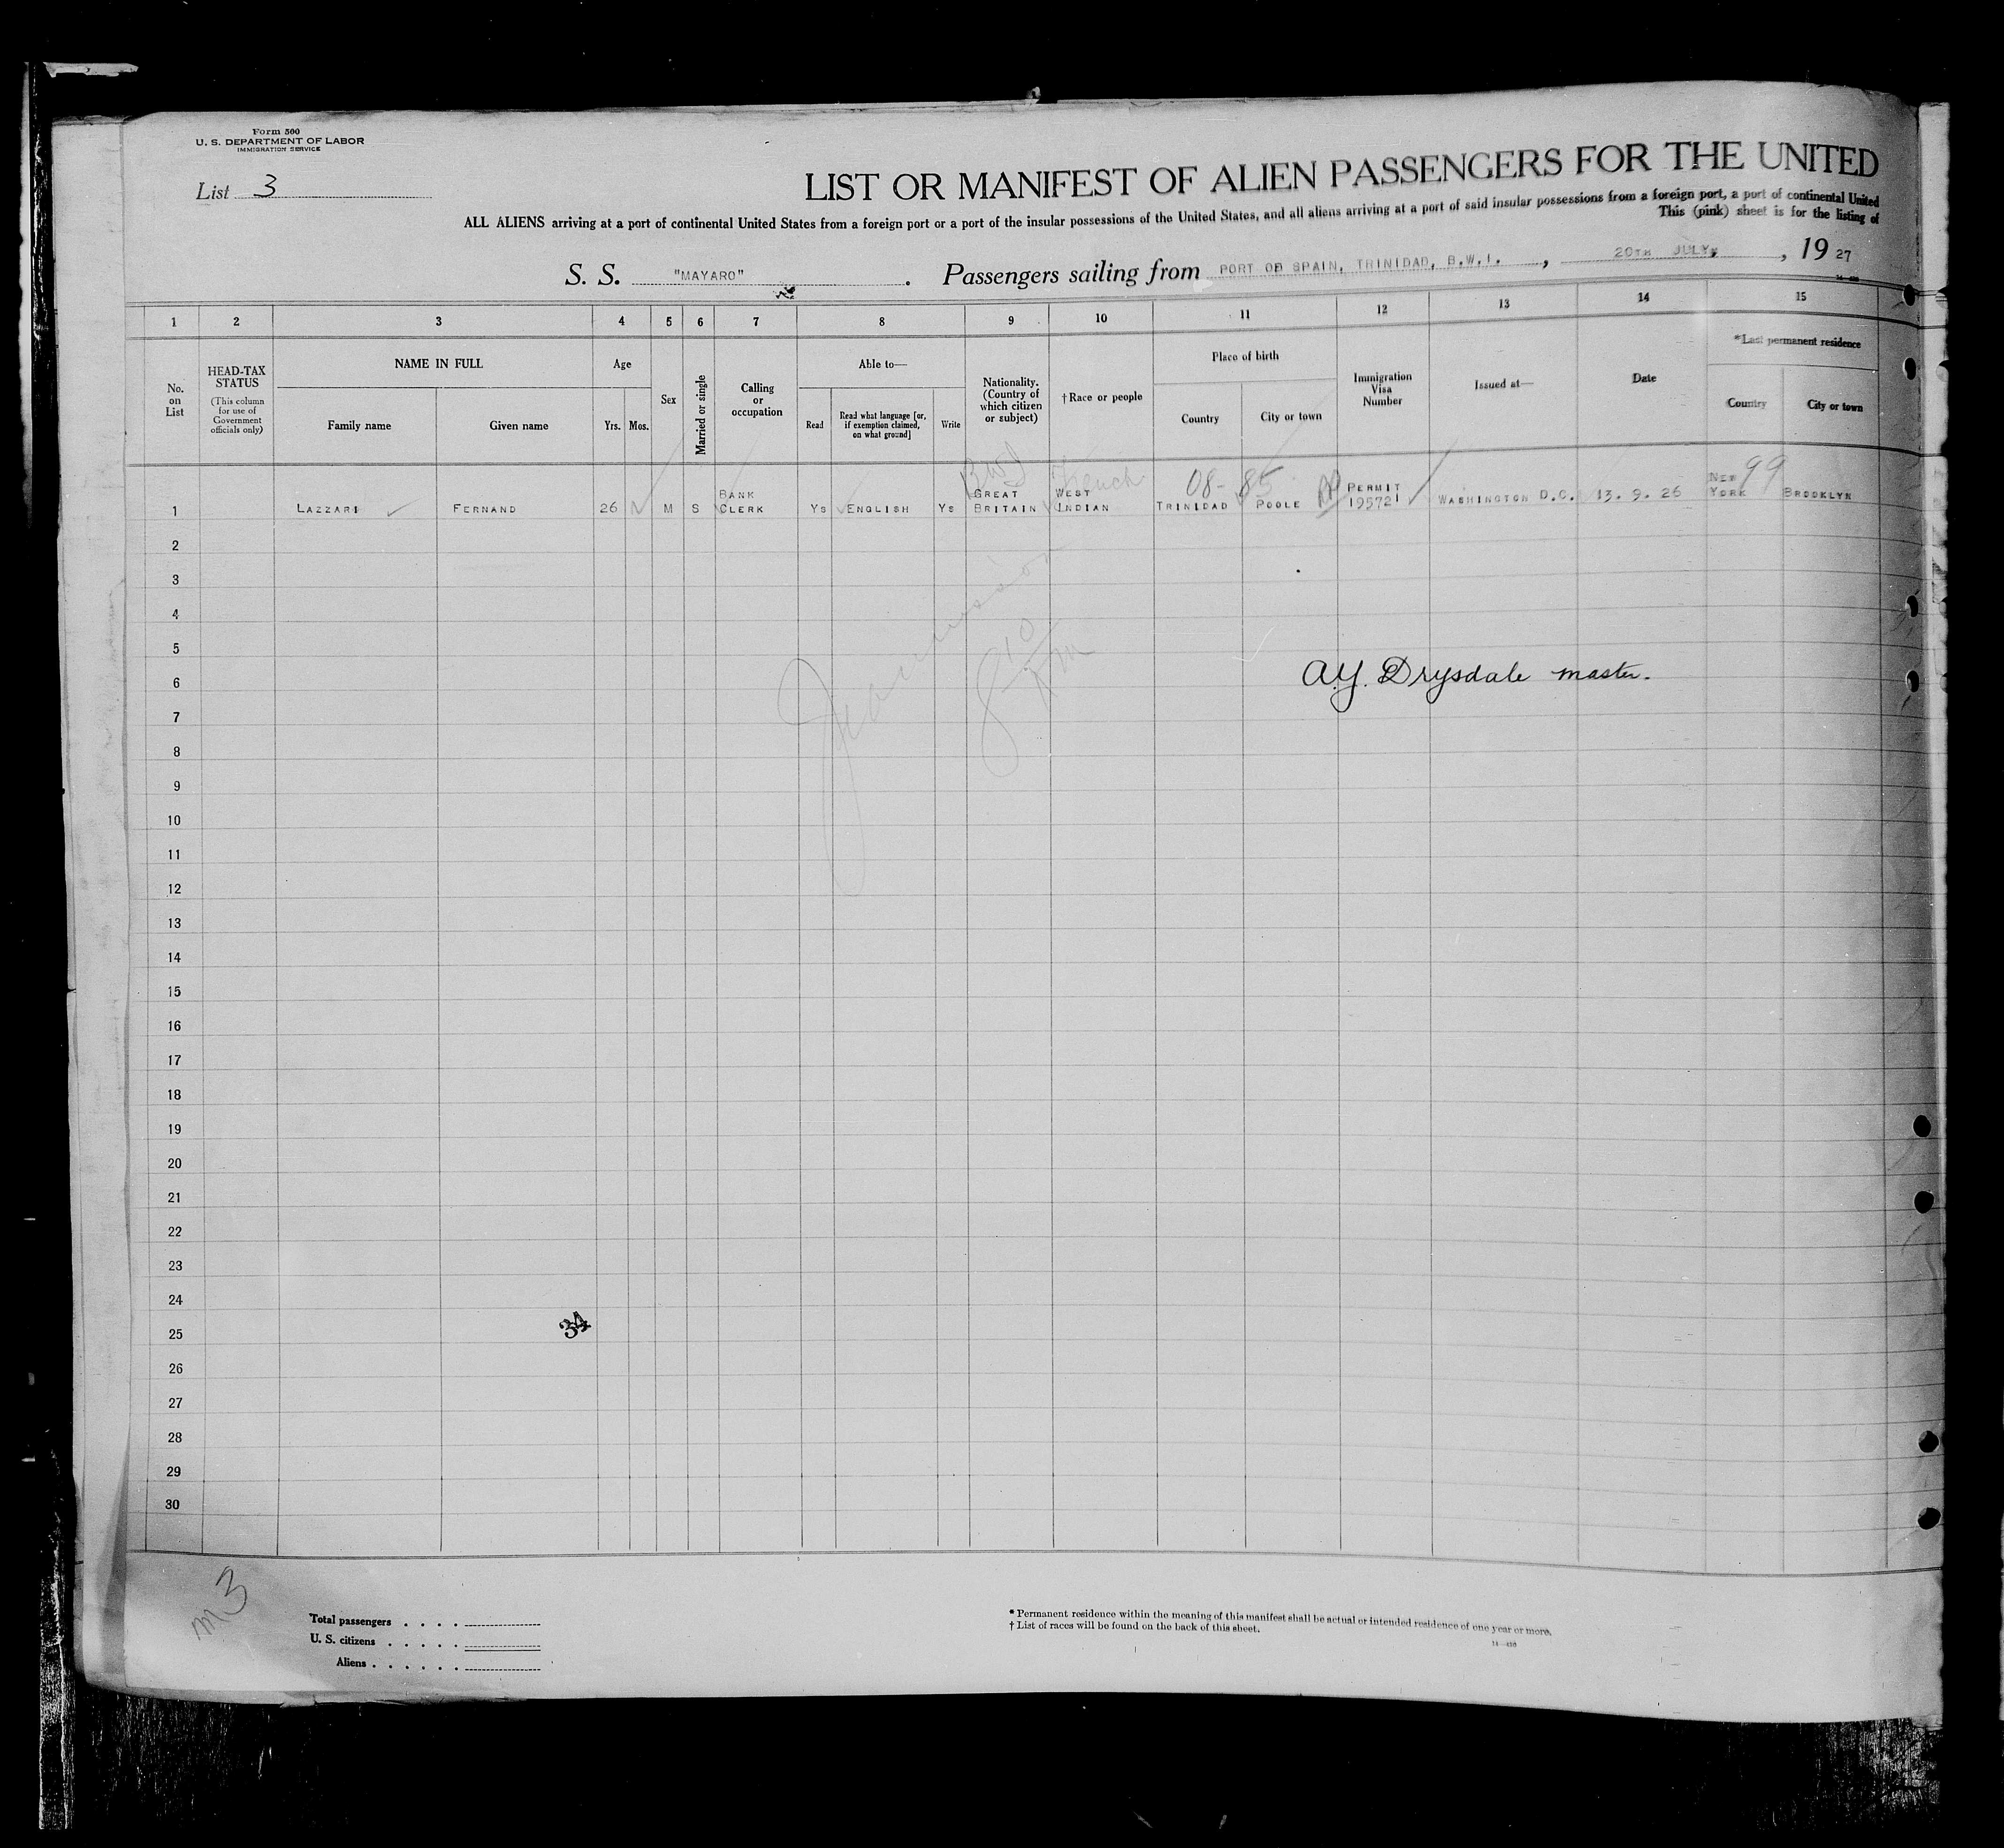 Form 500
U. S. DEPARTMENT OF LABOR
IMMIGRATION SERVICE
List 3
LIST OR MANIFEST OF ALIEN PASSENGERS FOR THE UNITED
ALL ALIENS arriving at a port of continental United States from a foreign port or a port of the insular possessions of the United States, and all aliens arriving at a port of said insular possessions from a foreign port, a port of continental United
This (pink) sheet is for the listing of
S. S. "MAYARO". Passengers sailing from PORT OF SPAIN, TRINIDAD, B.W.I., 20TH JULY, 19 27
1 2 3 4 5 6 7 8 9 10 11 12 13 14 15
No. on List
HEAD-TAX STATUS (This column for use of Government officials only)
NAME IN FULL
Family name
Given name
Age
Yrs. Mos.
Sex
Married or single
Calling or occupation
Able to—
Read
Read what language [or, if exemption claimed, on what ground]
Write
Nationality. (Country of which citizen or subject)
† Race or people
Place of birth
Country
City or town
Immigration Visa Number
Issued at—
Date
*Last permanent residence
Country
City or town
BWI French 08-85 99
1 LAZZARI FERNAND 26 M S BANK CLERK YS ENGLISH YS GREAT BRITAIN WEST INDIAN TRINIDAD POOLE PERMIT 195721 WASHINGTON D.C. 13. 9. 26 NEW YORK BROOKLYN
2
3
4
5
6
A.Y. Drysdale master.
7
8
9
10
11
12
13
14
15
16
17
18
19
20
21
22
23
24
34
25
26
27
28
29
30
m3
Total passengers . . . .
U. S. citizens . . . . .
Aliens . . . . . .
* Permanent residence within the meaning of this manifest shall be actual or intended residence of one year or more.
† List of races will be found on the back of this sheet.